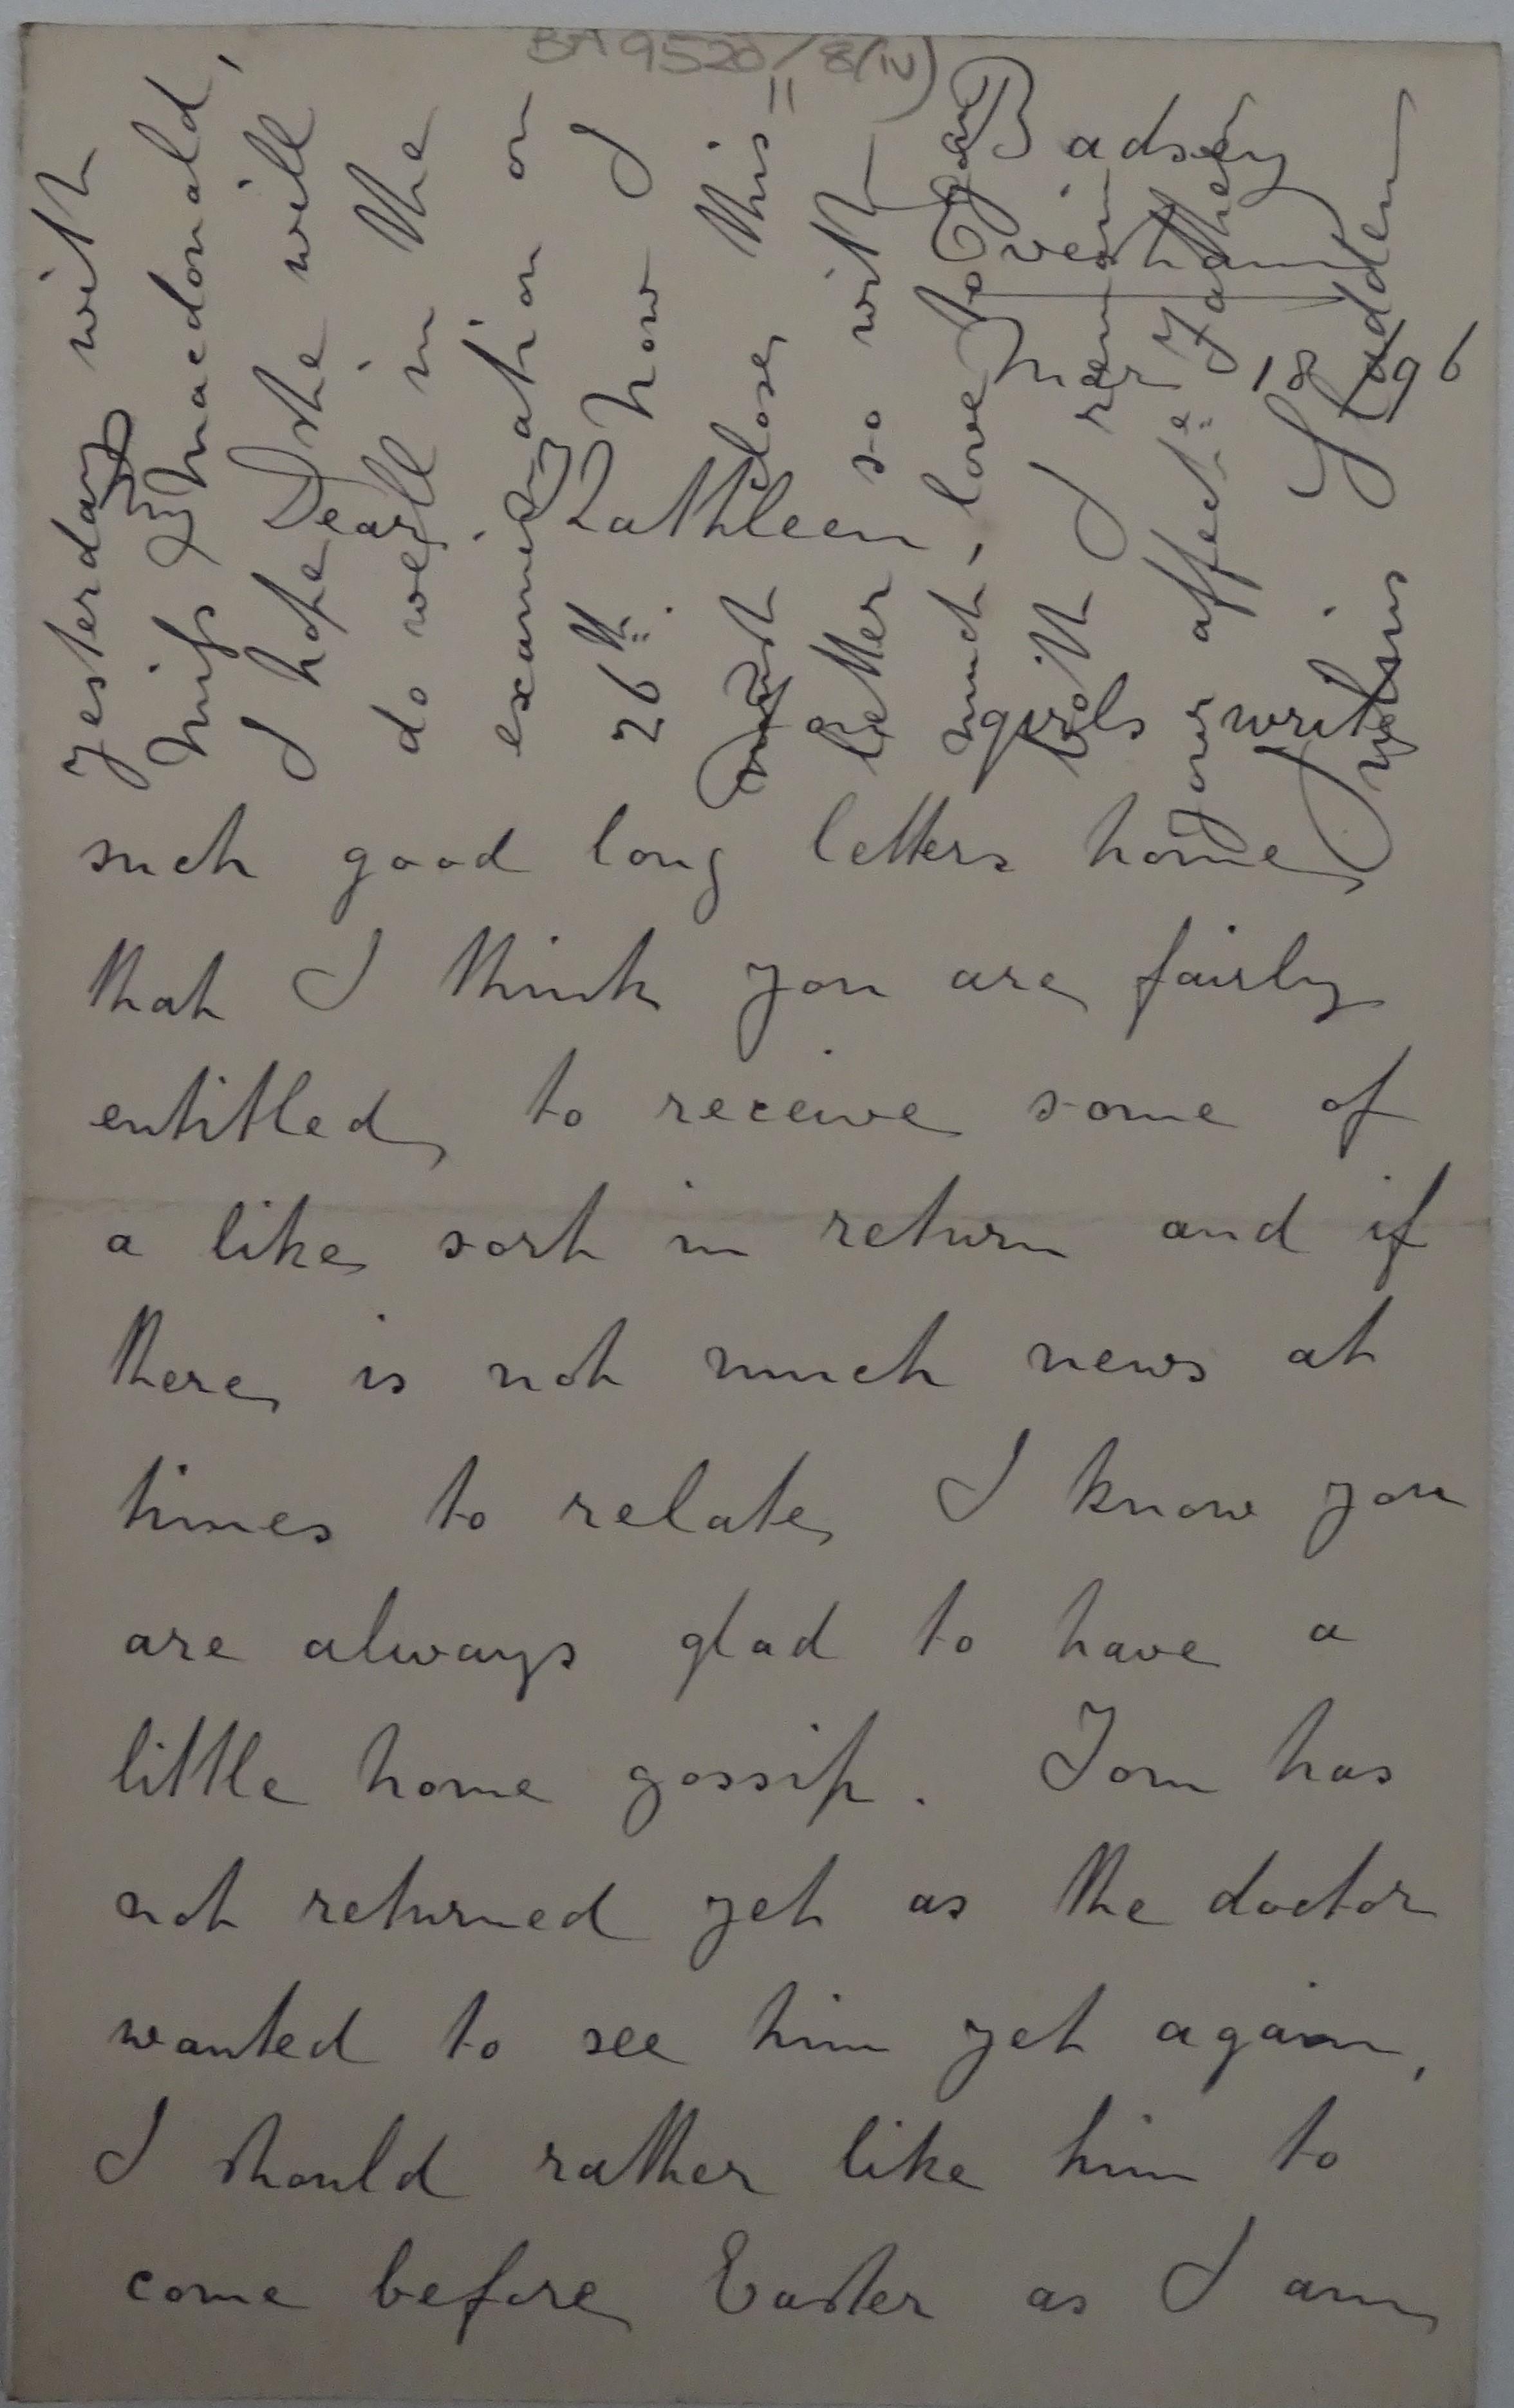 BA9520/8/(iv)
11
Badsey
Evesham
Mar 18 /96
Dear Kathleen,
You girls write
such good long letters home
that I think you are fairly
entitled to receive some of
a like sort in return and if
there is not much news at
times to relate I know you
are always glad to have a
little home gossip. Tom has
not returned yet as the doctor
wanted to see him yet again,
I should rather like him to
come before Easter as I am
yesterday with
Miss E Macdonald,
I hope she will
do well in the
examination on
26th. Now I
must close this
letter so with
much love to you
both I remain
your affecte Father
Julius Sladden